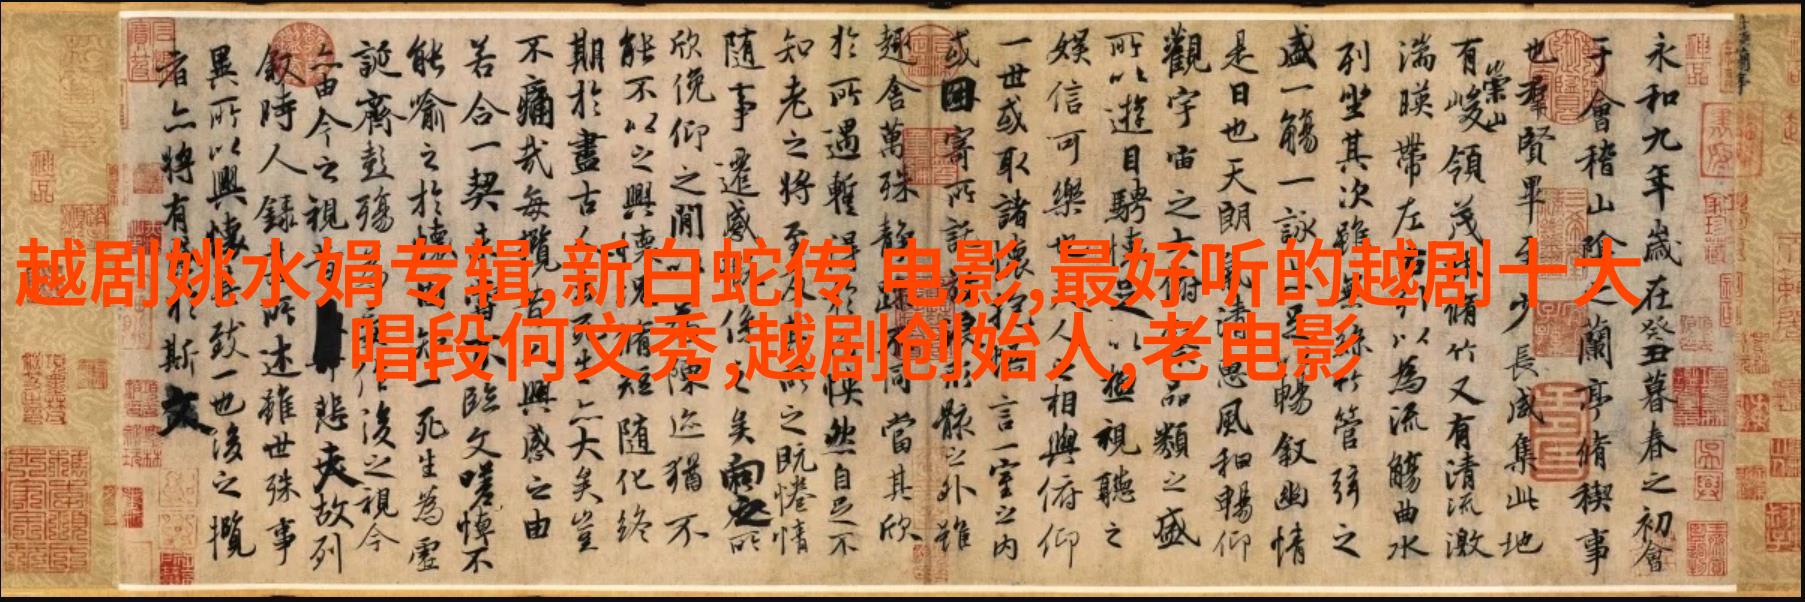 越剧姚水娟专辑,新白蛇传 电影,最好听的越剧十大
唱段何文秀,越剧创始人,老电影
永和九年歲在癸丑暮春之初會
于會稽山陰之蘭亭脩稧事
也羣賢畢至少長咸集此地
有崇山峻領茂林脩竹又有清流激
湍暎帶左右引以為流觴曲水
列坐其次雖無絲竹管弦之
盛一觴一詠亦足以暢叙幽情
是日也天朗氣清惠風和暢仰
觀宇宙之大俯察品類之盛
所以遊目騁懷足以極視聽之
娛信可樂也夫人之相與俯仰
一世或取諸懷抱悟言一室之內
或因寄所託放浪形骸之外雖
趣舍萬殊静躁不同當其欣
於所遇暫得於己怏然自足不
知老之將至及其所之既惓情
隨事遷感慨係之矣向之所
欣俛仰之閒以為陳迹猶不
能不以之興懷況脩短隨化終
期於盡古人云死生亦大矣豈
不痛哉每攬昔人興感之由
若合一契未甞不臨文嗟悼不
能喻之於懷固知一死生為虛
誕齊彭殤為妄作後之視今
亦由今之視昔悲夫故列
叙時人錄其所述雖世殊事
異所以興懷其致一也後之攬
者亦將有感於斯文